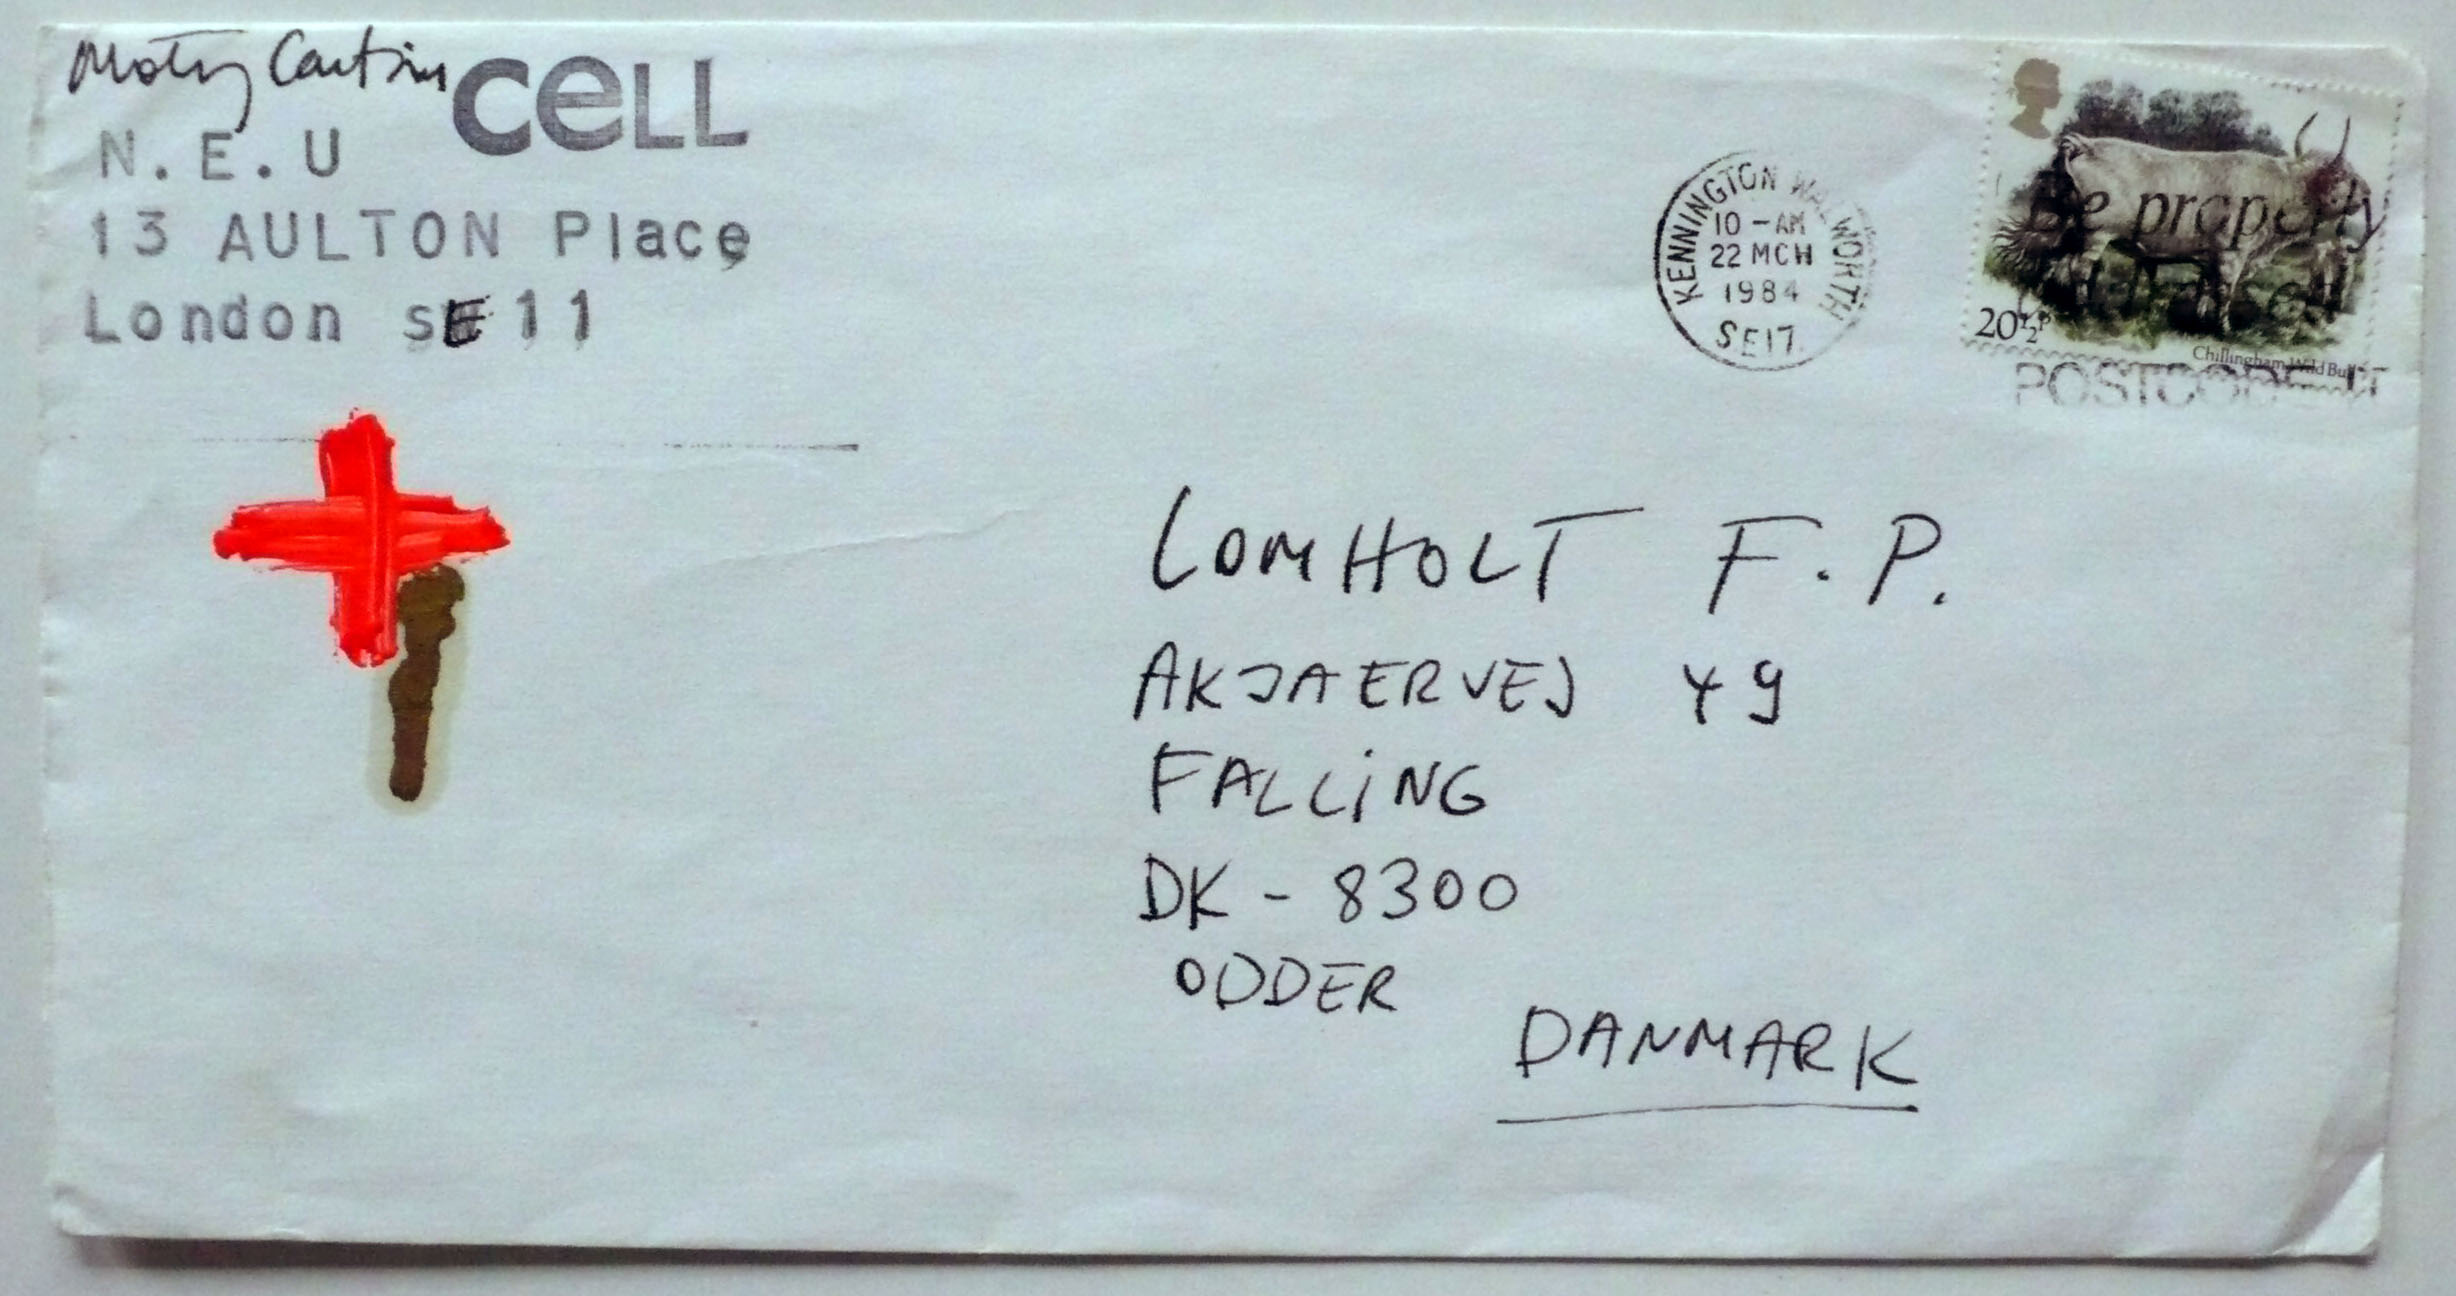 CELL
N.E.U
13 AULTON Place
London SE11
KENNINGTON WALWORTH
10-AM
22 MCH
1984
SE17
Be properly
20½P
Chillingham Wild Bull
POSTCODE IT
LOMHOLT F.P.
AKJAERVEJ 49
FALLiNG
DK-8300
ODDER
DANMARK